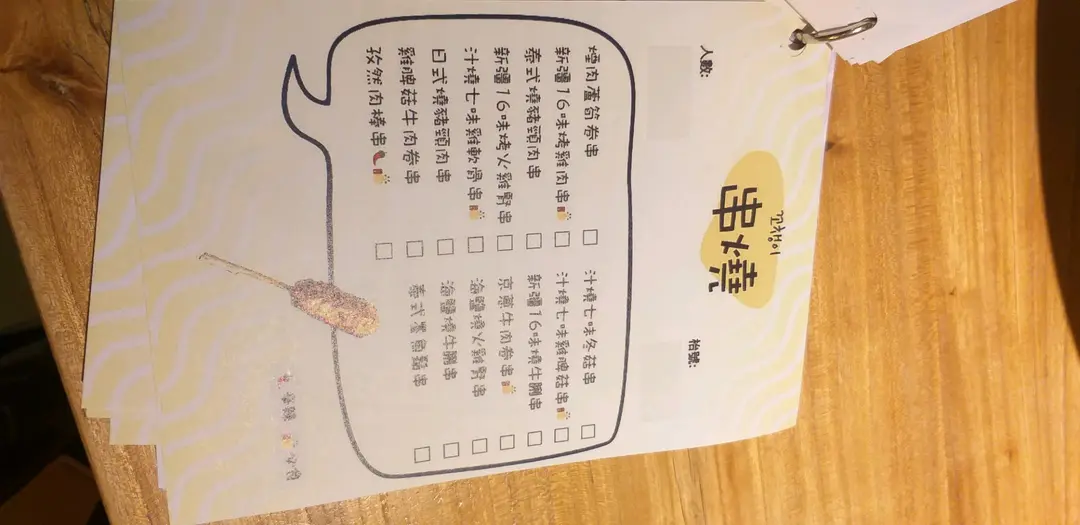 人數:
枱號:
꼬챙이
串燒
煙肉蘆筍卷串
新疆16味烤雞肉串
泰式燒豬頸肉串
新疆16味烤火雞腎串
汁燒七味雞軟骨串
日式燒豬頸肉串
雞脾菇牛肉卷串
孜然肉棒串
汁燒七味冬菇串
汁燒七味雞脾菇串
新疆16味燒牛脷串
京蔥牛肉卷串
海鹽燒火雞腎串
海鹽燒牛脷串
泰式墨魚鬚串